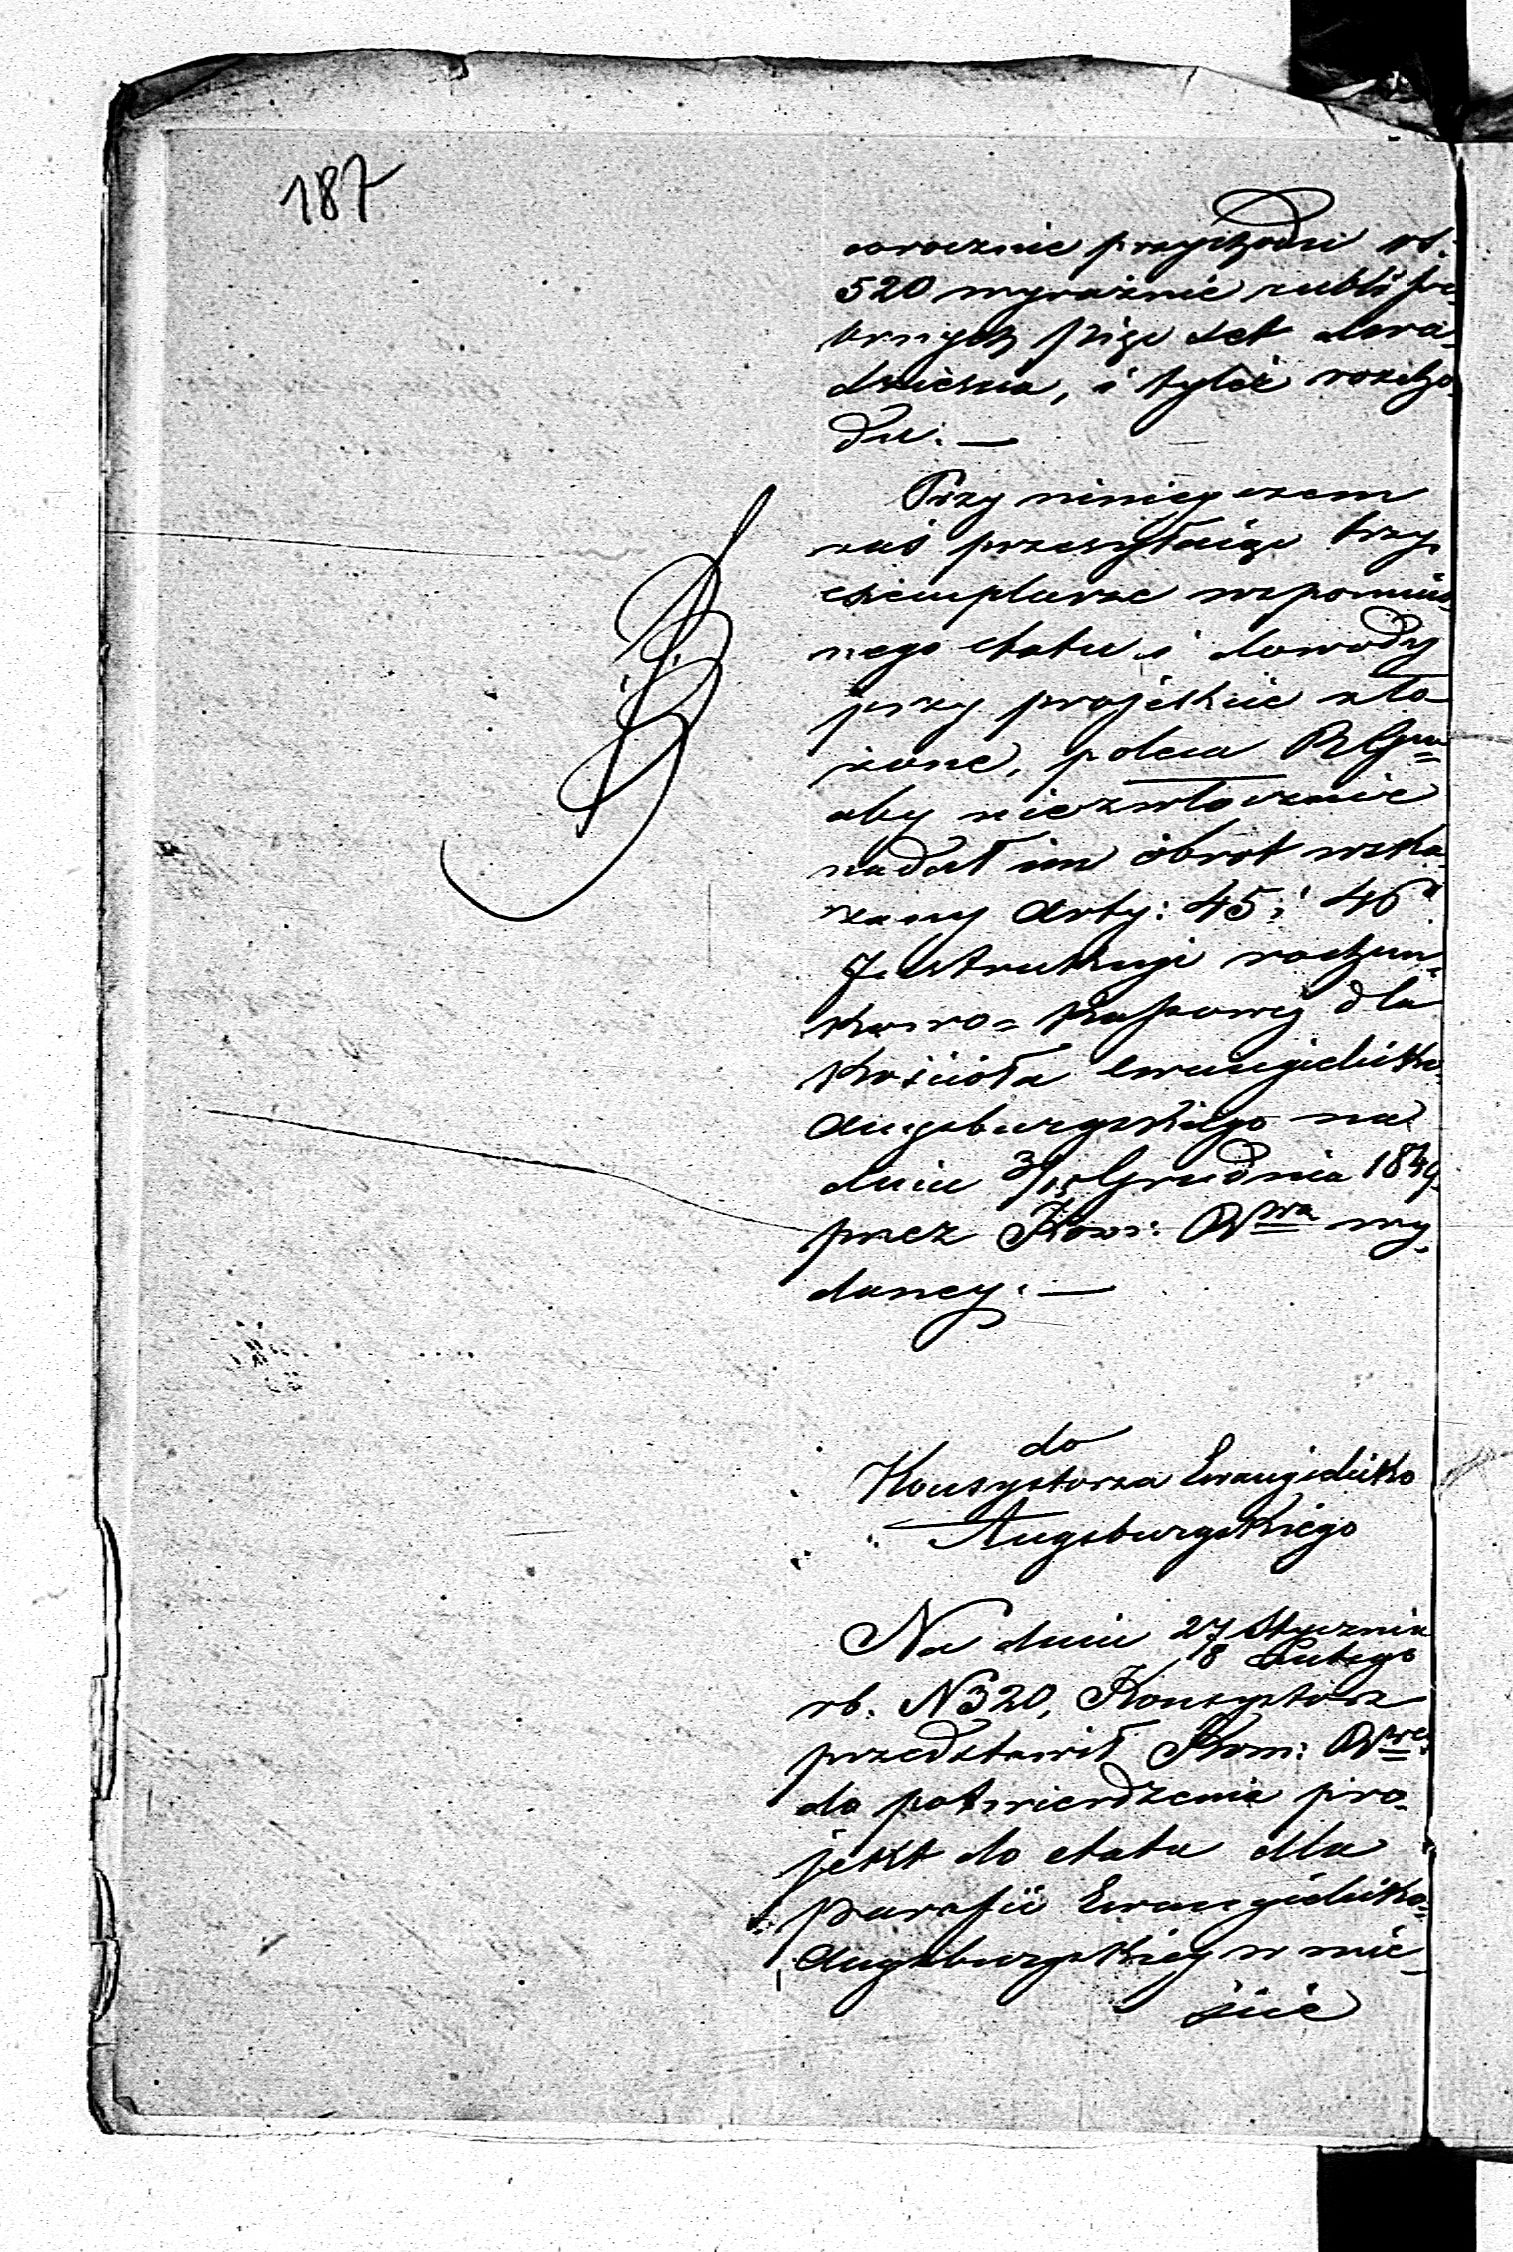 187
corocznie przychodu rs.
520 wyraźnie rubli sre-
brnych pięć set dwa-
dzieścia, i tyleż rozcho-
du. —
Przy niniejszem
zaś przesyłaiąc trzy
exemplarze wspomnio-
nego etatu i dowody
przy projekcie zło-
żone, poleca R Gu
aby niezwłocznie
nadał im obrot wska-
zany Arty: 45 i 46
Instrukcyi rachun-
kowo-Kassowéj dla
Kościoła Ewangielicko
Augsburgskiego na
dniu 3/15 Grudnia 1849
przez Kom: Rwa wy-
daney. —
do
Konsystorza Ewangielicko
Augsburgskiego
Na dniu 27 Stycznia
8 Lutego
rb. N 320, Konsystorz
przedstawił Kom: Rwey
do potwierdzenia pro-
jekt do etatu dla
Parafii Ewangielicko-
Augsburgskiey w mie-
ście